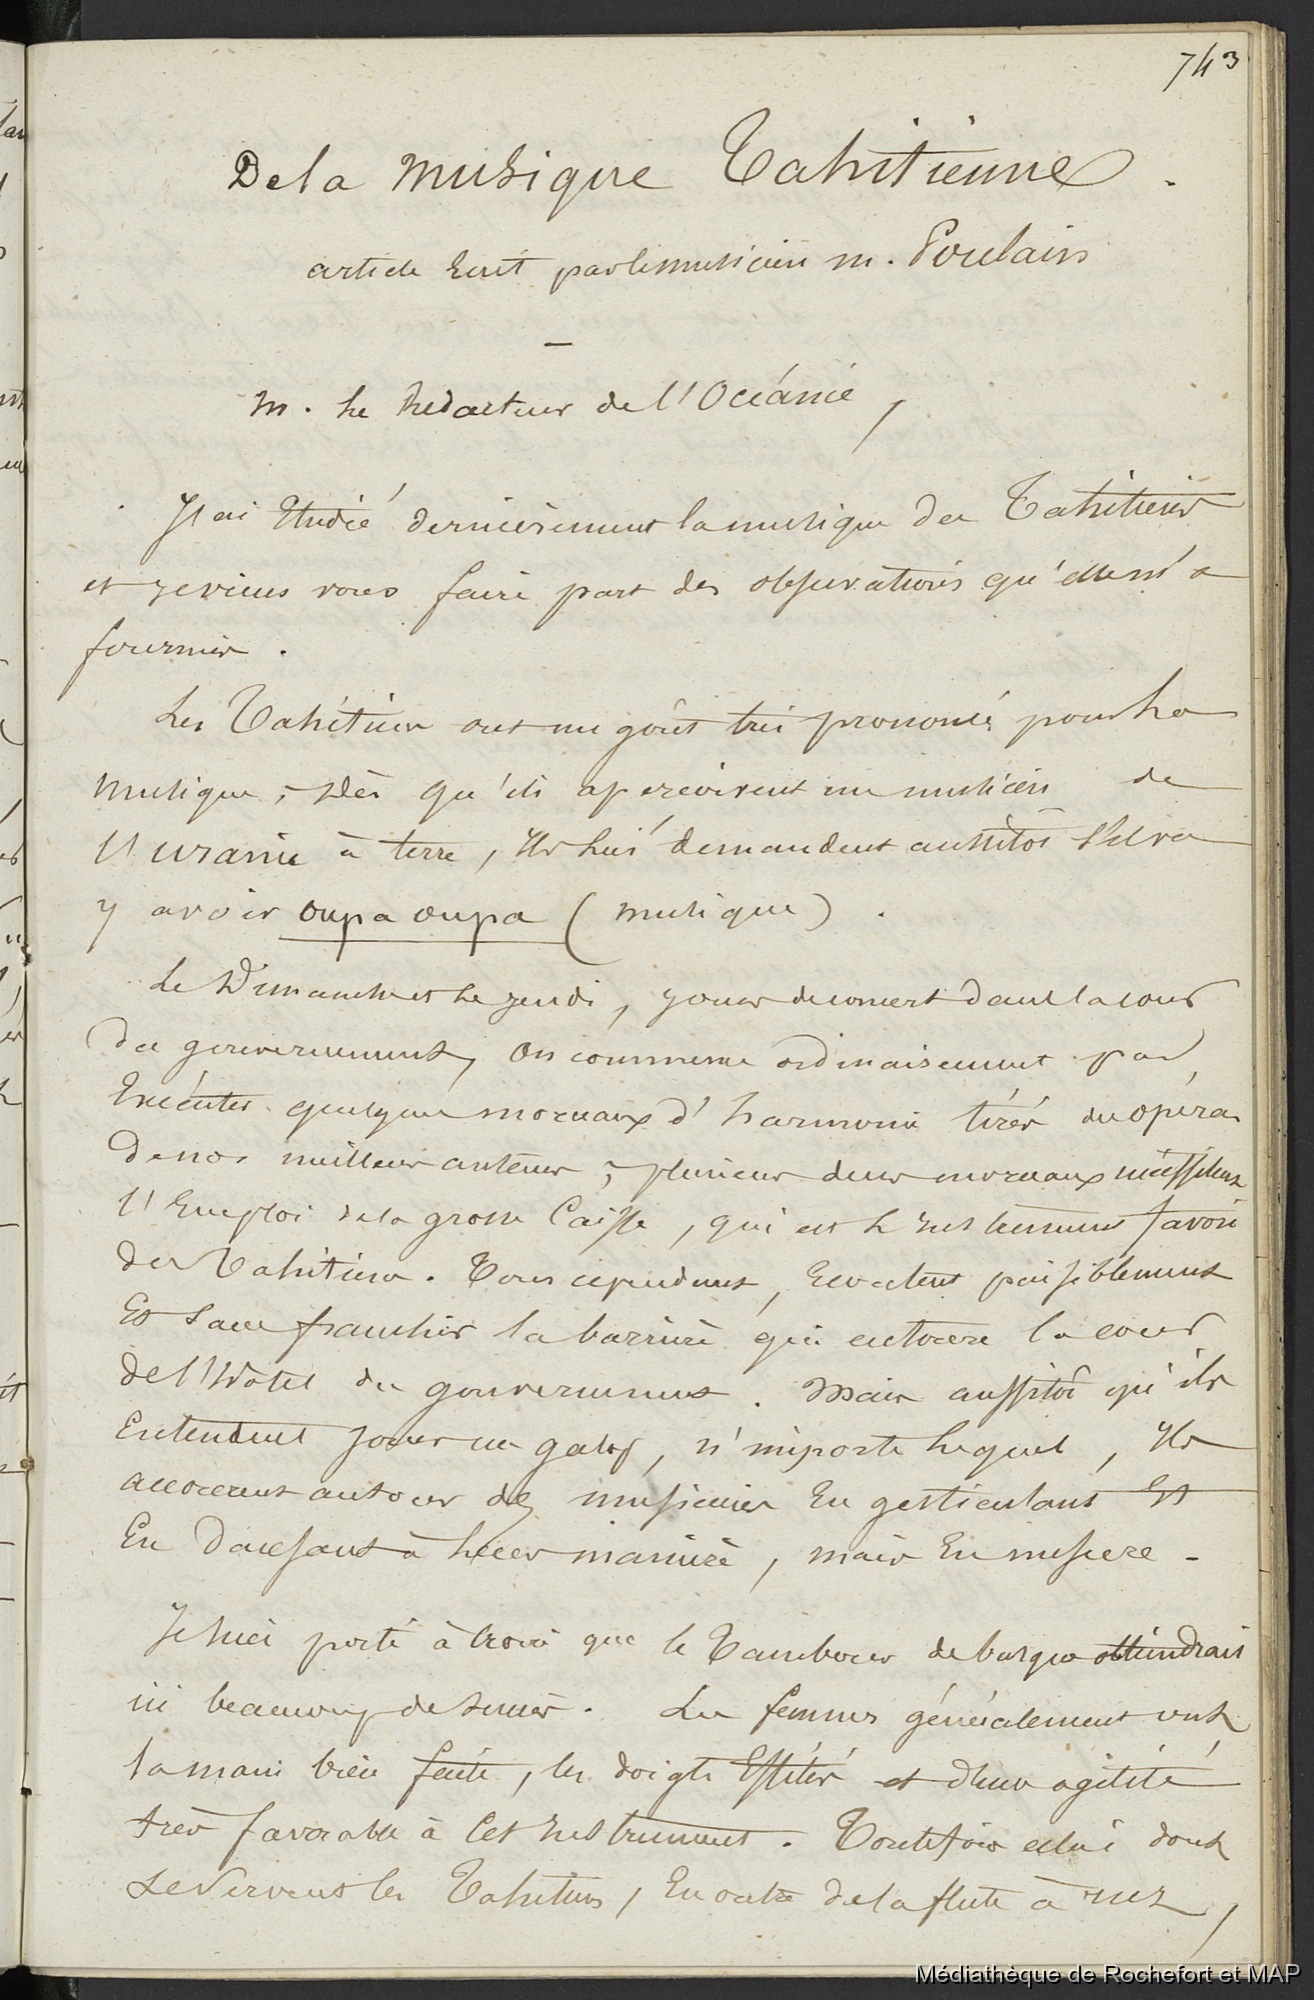 743
De la musique Tahitienne.
article Ecrit par le musicien m. Poulain
—
M. Le Redacteur de l'Océanie,
J'ai Etudié dernièrement la musique des Tahitiens
et je viens vous faire part des observations qu'elle m'a
fournies.
Les Tahitiens ont un goût très prononcé pour La
musique; Dès qu'ils aperçoivent un musicien de
l'uranie à terre, Ils lui demandent aussitôt s'il va
y avoir oupa oupa (musique).
Le Dimanche et le jeudi, jours de concert dans la cour
du gouvernement, On commence ordinairement par
Executer quelques morceaux d'harmonie tirés des opéras
de nos meilleurs auteurs; plusieurs de ces morceaux nécessitent
l'Emploi de la grosse Caisse, qui est l'Instrument favori
des Tahitiens. Tous cependant, Ecoutent paisiblement
Et Sans franchir la barrière qui entoure la cour
de l'Hôtel du gouvernement. Mais aussitôt qu'ils
Entendent jouer un galop, n'importe lequel, Ils
accourent autour des musiciens En gesticulant Et
En Dansant à Leur manière, mais En mesure.
Je suis porté à croire que le Tambour de basque obtiendrait
ici beaucoup de succès. Les femmes généralement ont
la main bien faite, les doigts Effilés et d'une agilité
très favorable à Cet Instrument. Toutefois celui dont
se servent les Tahitiens, En outre de la flute à nez,
Médiathèque de Rochefort et MAP